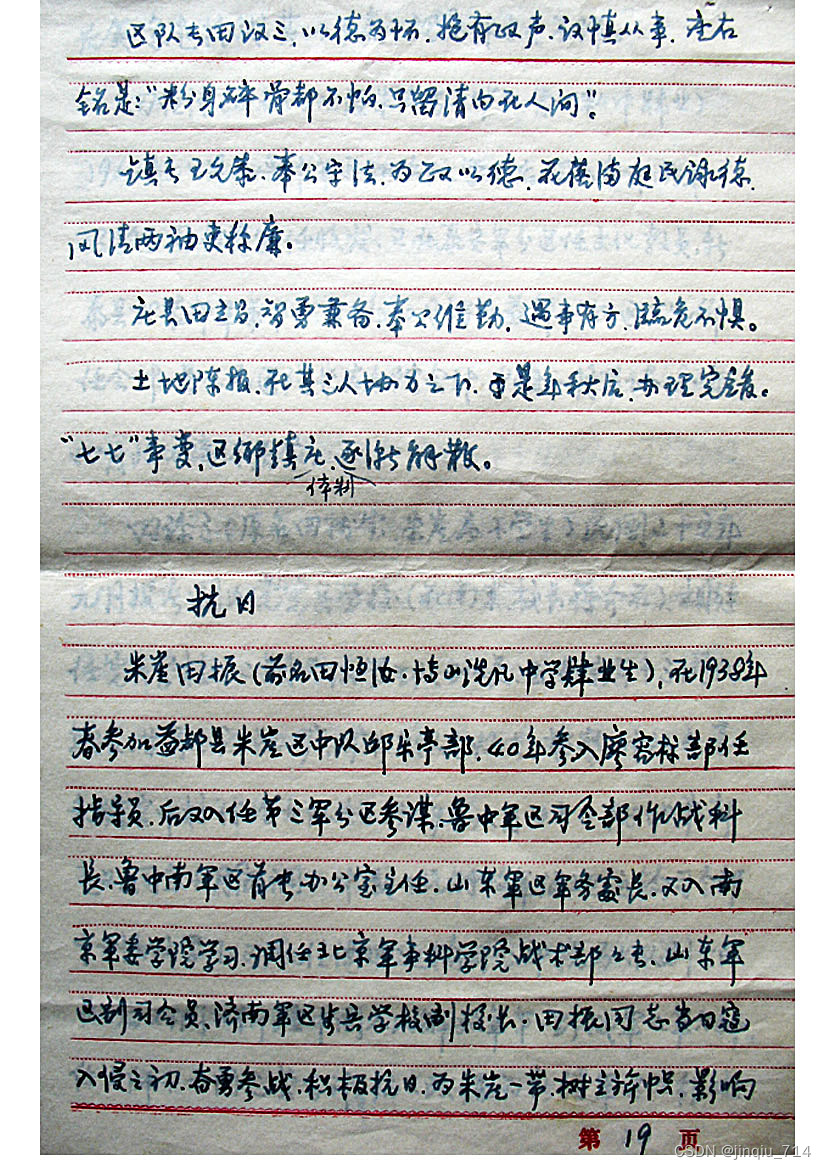 区队长田汉三,以德为怀,挹有政声,谨慎从事,座右
铭是:“粉身碎骨都不怕,只留清白在人间”。
镇长王允荣,奉公守法,为政以德,花落满庭民颂德,
风清两袖吏称廉。
庄长田立昌,智勇兼备,奉公维勤,遇事有方,临危不惧。
土地陈报,在其三人协力之下,于是年秋后,办理完毕。
“七七”事变,区乡镇庄,逐渐解散。
体制
抗日
朱崖田振(前名田恒汝·博山洗凡中学肄业生),在1938年
春参加益都县朱崖区中队邱乐亭部,40年参入廖容标部任
指导员,后又入任第三军分区参谋,鲁中军区司令部作战科
长,鲁中南军区首长办公室主任,山东军区军务处长,又入南
京军委学院学习,调任北京军事科学院战术部部长,山东军
区副司令员、济南军区步兵学校副校长·田振同志当日寇
入侵之初,奋勇参战,积极抗日,为朱崖一带,树立新帜,影响
第19页
CSDN @jinqiu_714